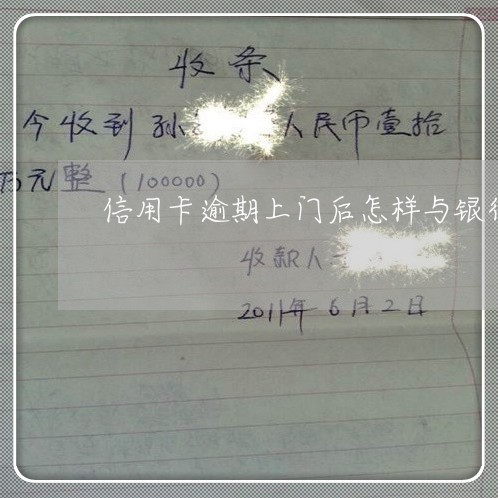 收条
今收到孙 人民币壹拾
万元整（100000）
信用卡逾期上门后怎样与银行
收款人
2011年6月2日